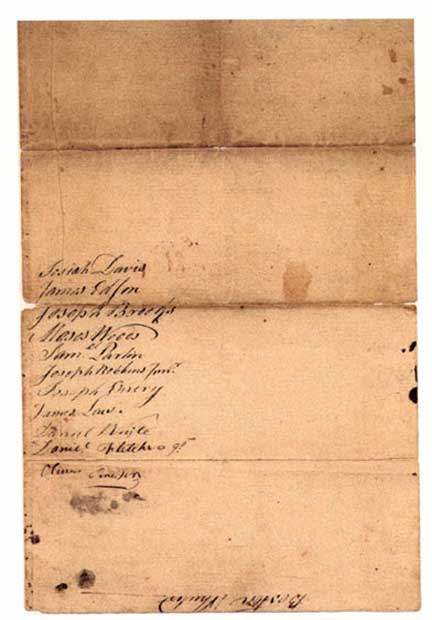 Josiah Davis
James Edson
Joseph Brooks
Moses Wood
Sam.el Parlin
Joseph Robbins Jun.r
Joseph Emery
James Law
Daniel White
Daniel Fletcher
Oliver Emerson
Boston